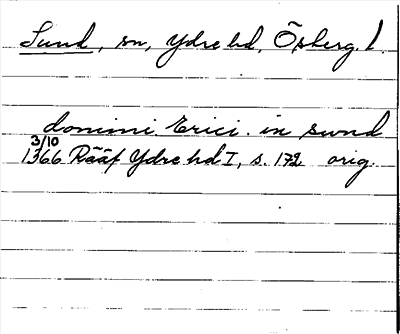 Sund, sn, Ydre hd, Ösberg. l.
domini. Erici. in swnd
3/10
1366 Rääf Ydre hd I, s. 172 orig.